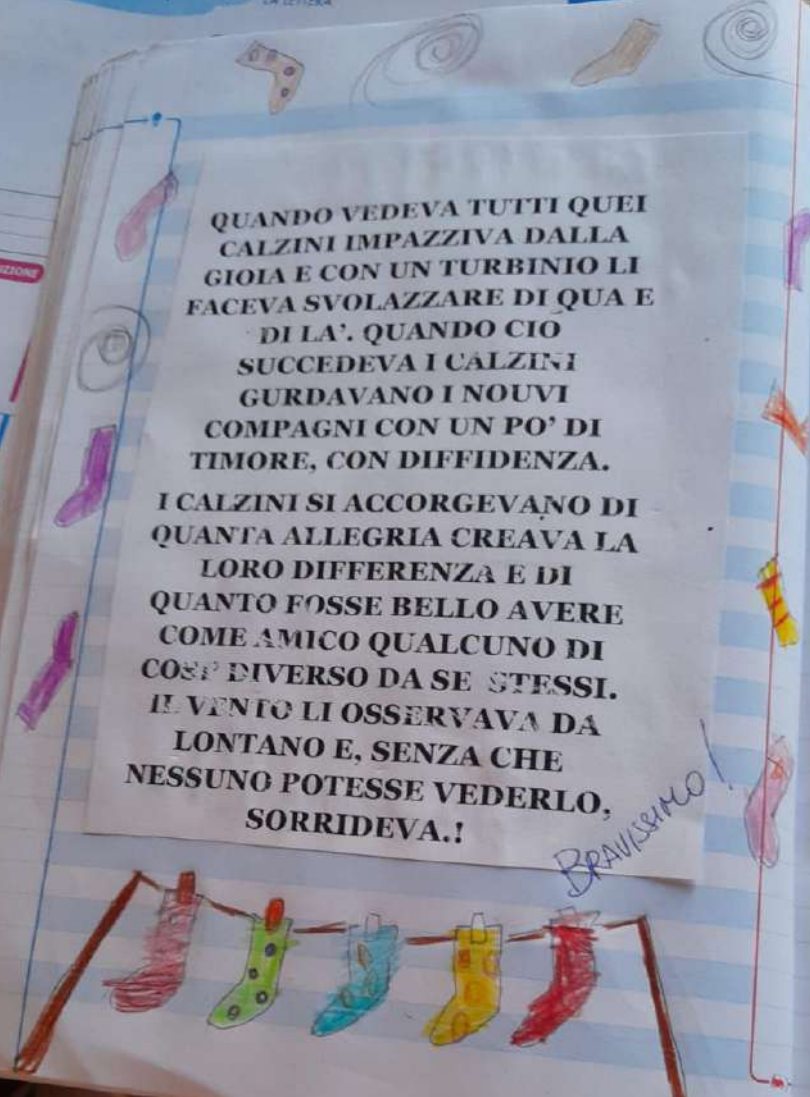 LA LETTERA
QUANDO VEDEVA TUTTI QUEI
CALZINI IMPAZZIVA DALLA
GIOIA E CON UN TURBINIO LI
FACEVA SVOLAZZARE DI QUA E
DI LA'. QUANDO CIÒ
SUCCEDEVA I CALZINI
GURDAVANO I NOUVI
COMPAGNI CON UN PO' DI
TIMORE, CON DIFFIDENZA.
I CALZINI SI ACCORGEVANO DI
QUANTA ALLEGRIA CREAVA LA
LORO DIFFERENZA E DI
QUANTO FOSSE BELLO AVERE
COME AMICO QUALCUNO DI
COSI' DIVERSO DA SE STESSI.
IL VENTO LI OSSERVAVA DA
LONTANO E, SENZA CHE
NESSUNO POTESSE VEDERLO,
SORRIDEVA.!
BRAVISSIMO!